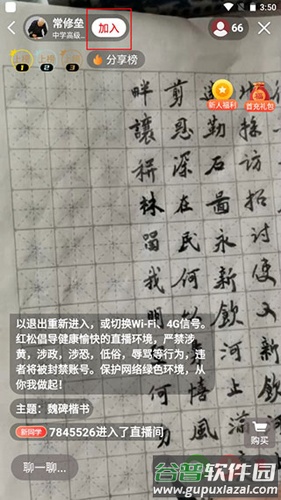 3:50
常修垒
中学高级...
加入
66
分享榜
新人福利
首充礼包
剪
畔
恩
勤
操
讓
深
石
访
耕
在
面
招
林
民
永
討
我
何
新
使
以
飲
又
明
河
新
情
上
飲
風
游
河
以退出重新进入，或切换Wi-Fi、4G信号。
红松倡导健康愉快的直播环境，严禁涉
黄，涉政，涉恐，低俗，辱骂等行为，违
者将被封禁账号。保护网络绿色环境，从
你我做起！
主题：魏碑楷书
新同学 7845526进入了直播间
购买
聊一聊...
谷普软件园
www.gupuxlazai.com